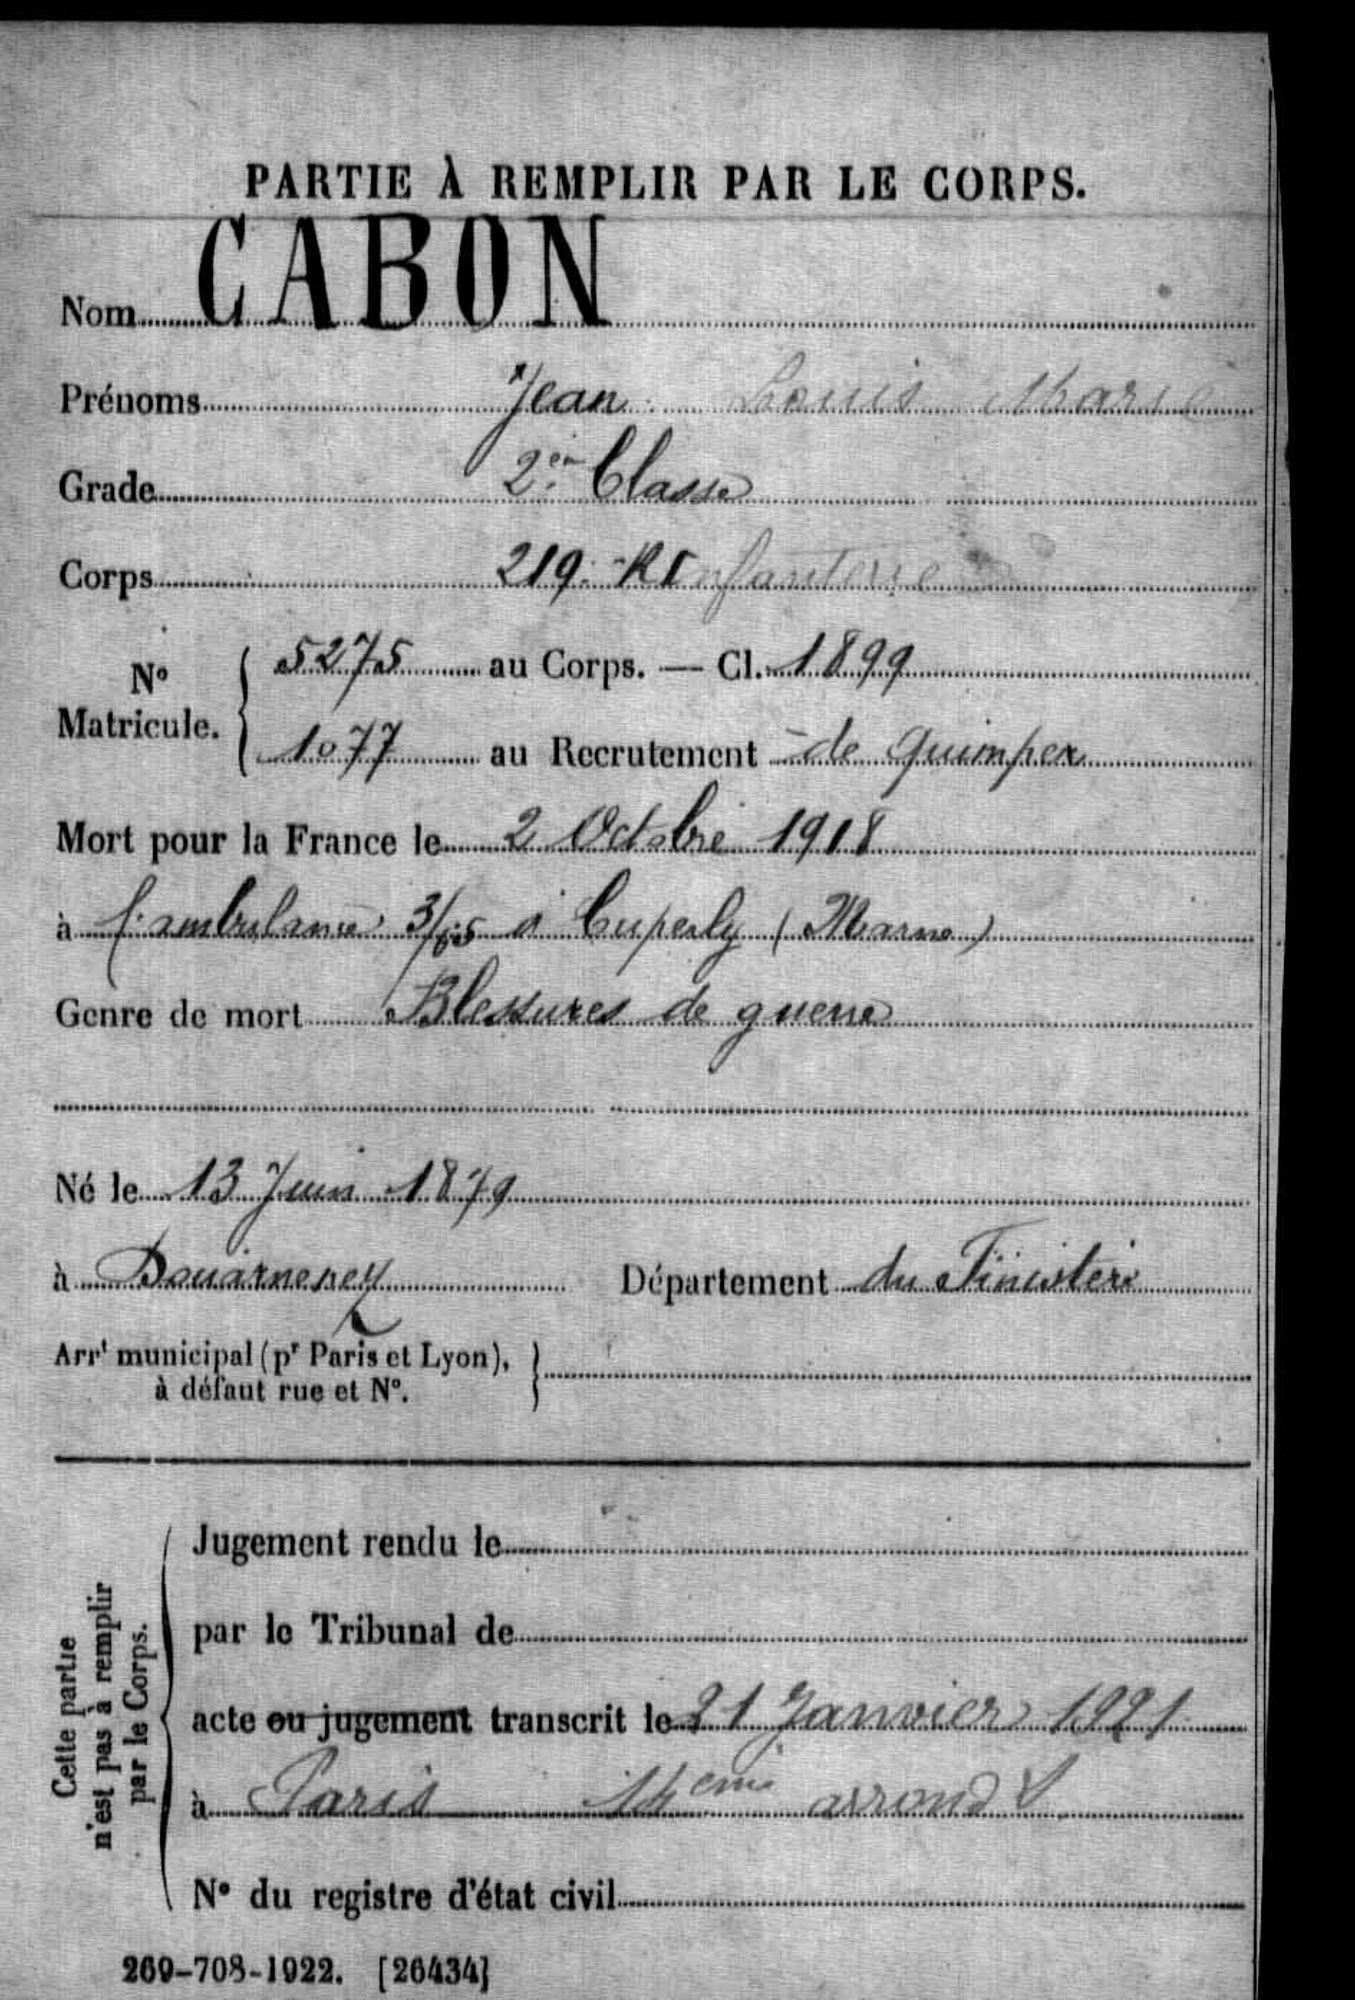 PARTIE À REMPLIR PAR LE CORPS.
Nom CABON
Prénoms Jean Louis Marie
Grade 2e Classe
Corps 219 RInfanterie
No Matricule. 5275 au Corps. — Cl. 1899
1077 au Recrutement de Quimper
Mort pour la France le 2 Octobre 1918
à l'ambulance 3/65 à Cuperly (Marne)
Genre de mort Blessures de guerre
Né le 13 Juin 1879
à Douarnenez Département du Finistère
Arrt municipal (pr Paris et Lyon),
à défaut rue et No.
Cette partie
n'est pas à remplir
par le Corps.
Jugement rendu le
par le Tribunal de
acte ou jugement transcrit le 21 Janvier 1921
à Paris 14eme arrondt
No du registre d'état civil
269-708-1922. [26434]